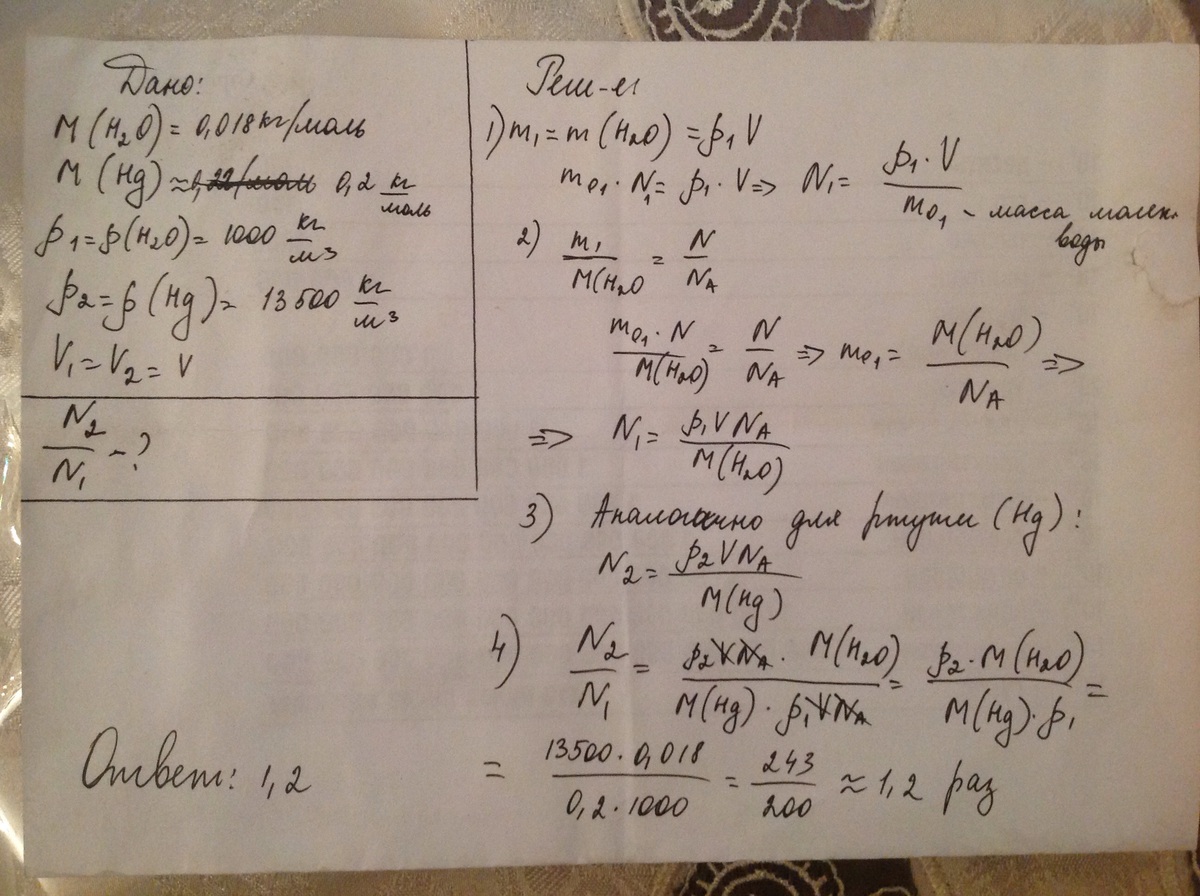 Дано:
M(H₂O) = 0,018 кг/моль
M(Hg) ≈ 0,2 кг/моль
ρ₁ = ρ(H₂O) = 1000 кг/м³
ρ₂ = ρ(Hg) = 13500 кг/м³
V₁ = V₂ = V
N₂/N₁ - ?
Реш-е
1) m₁ = m(H₂O) = ρ₁V
m₀₁ · N₁ = ρ₁ · V => N₁ = ρ₁ · V / m₀₁ - масса молек. воды
2) m₁ / M(H₂O = N / N_A
m₀₁ · N / M(H₂O) = N / N_A => m₀₁ = M(H₂O) / N_A =>
=> N₁ = ρ₁ V N_A / M(H₂O)
3) Аналогично для ртути (Hg):
N₂ = ρ₂ V N_A / M(Hg)
4) N₂/N₁ = ρ₂ V N_A · M(H₂O) / M(Hg) · ρ₁ V N_A = ρ₂ · M(H₂O) / M(Hg) · ρ₁ =
= 13500 · 0,018 / 0,2 · 1000 = 243/200 ≈ 1,2 раз
Ответ: 1,2